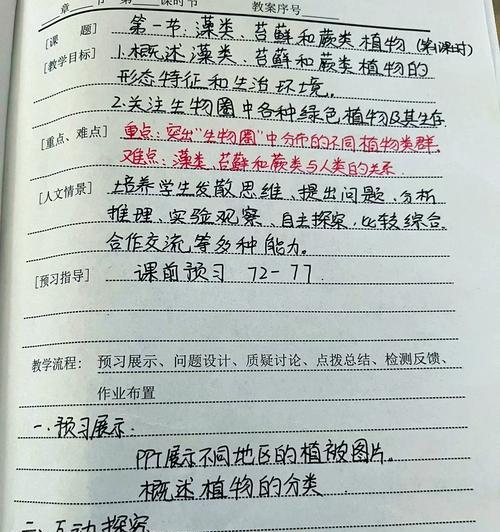 章 节 第 课时节 教案序号
[课 题] 第一节:藻类、苔鲜和蕨类植物(第1课时)
[教学目标] 1.概述藻类、苔藓和蕨类植物的
形态特征和生活环境。
2.关注生物圈中各种绿色植物及其生存
[重点、难点] 重点:突出"生物圈"中分布的不同植物类群。
难点:藻类、苔藓和蕨类与人类的关系.
[人文情景] 培养学生发散思维、提出问题、分析
推理、实验观察、自主探索,比较综合
合作交流等多种能力。
[预习指导] 课前预习 72-77
教学流程: 预习展示、问题设计、质疑讨论、点拨总结、检测反馈、
作业布置
一、预习展示.
PPT展示不同地区的植被图片。
概述植物的分类
二、互动探究